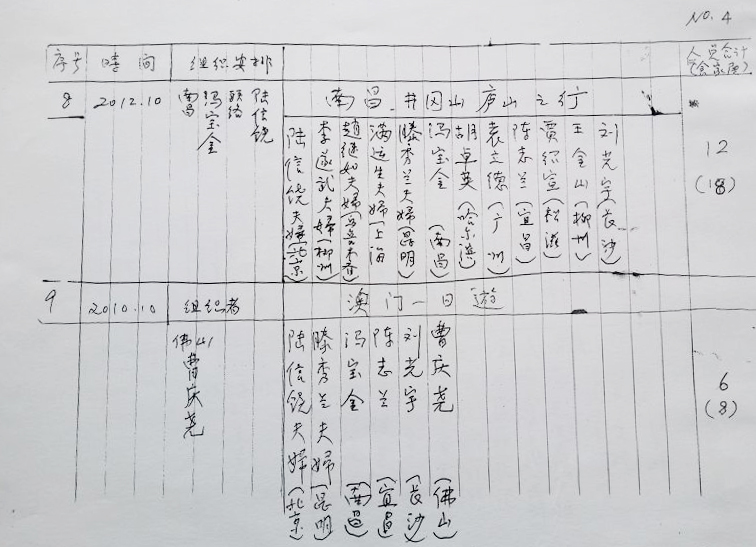 No. 4
序号 時间 组织安排 人员合计(含家属)
8 2012.10 南昌 冯宝金 联络 陆信饶 南昌、井冈山庐山之行 12 (18)
陆信饶夫婦(北京)
李遂武夫婦(柳州)
趙继如夫婦
满运生夫婦(上海
滕秀兰夫婦(昆明)
冯宝金(南昌)
胡卓英(哈尔滨)
袁立德(广州)
陈志兰(宜昌)
贾绍宣(松滋)
王金山(柳州)
刘光宇(长沙)
9 2010.10 组织者 澳门一日遊 6 (8)
佛山 曹庆尧
陆信饶夫婦(北京)
滕秀兰夫婦(昆明)
冯宝金(南昌)
陈志兰(宜昌)
刘光宇(长沙)
曹庆尧(佛山)